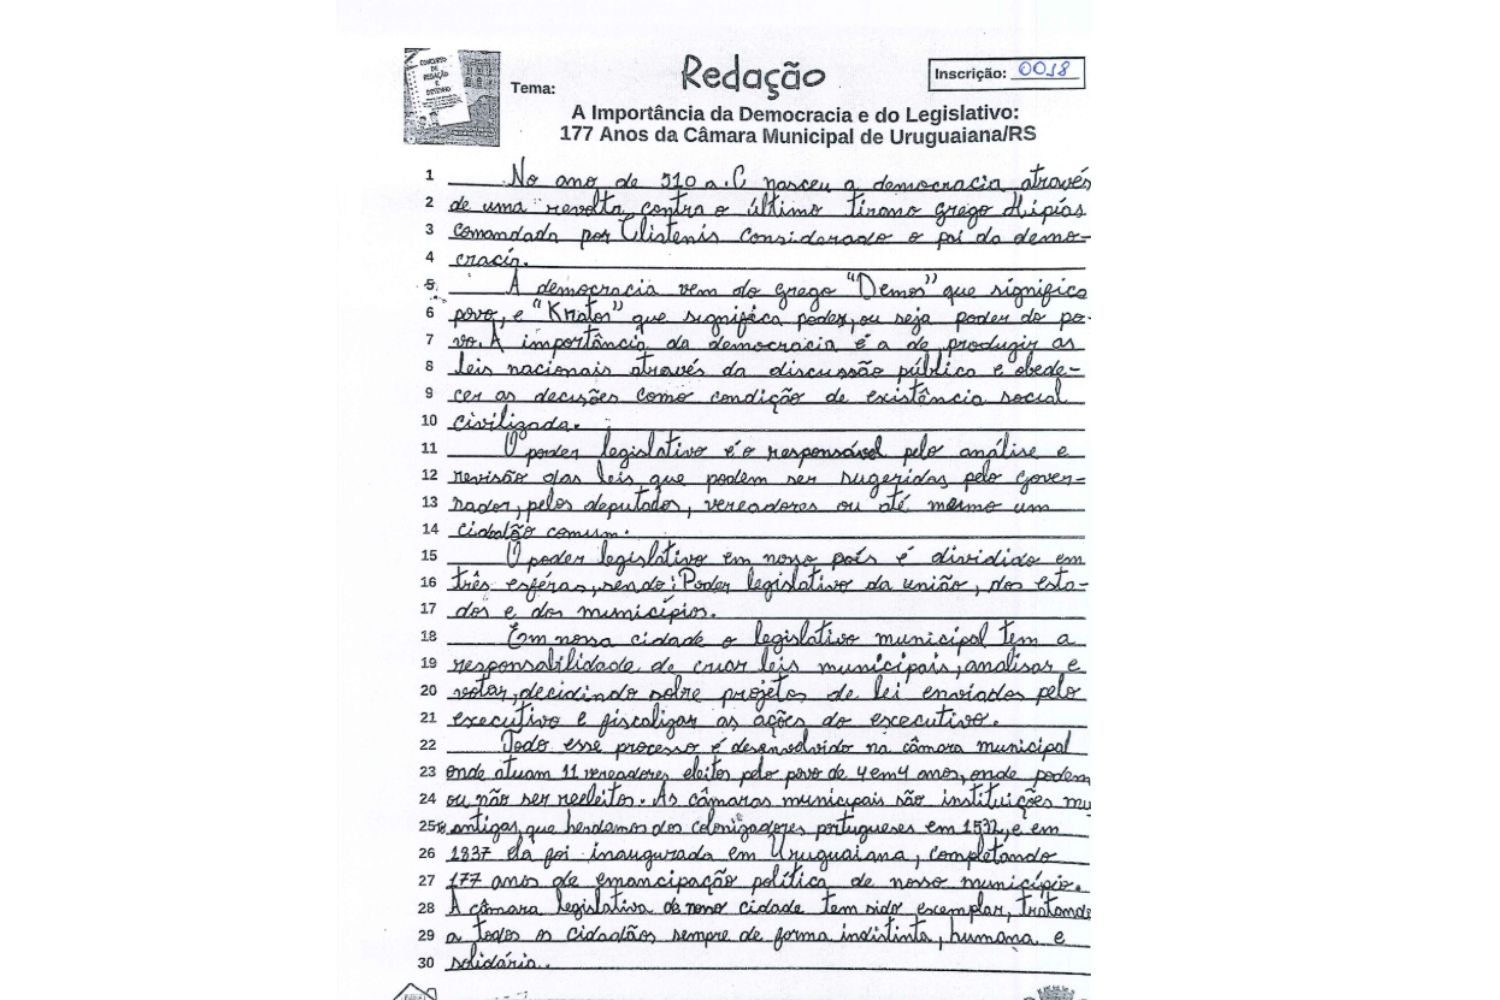 CONCURSO
DE
REDAÇÃO
E
DESENHO
Redação
Inscrição: 0018
Tema:
A Importância da Democracia e do Legislativo:
177 Anos da Câmara Municipal de Uruguaiana/RS
1 No ano de 510 a.C nasceu a democracia através
2 de uma revolta contra o último tirano grego Hipías
3 comandada por Clistenis considerado o pai da demo-
4 cracia.
5 A democracia vem do grego "Demos" que significa
6 povo, e "Kratos" que significa poder, ou seja poder do po-
7 vo. A importância da democracia é a de produzir as
8 leis nacionais através da discussão pública e obede-
9 cer as decisões como condição de existência social
10 civilizada.
11 O poder legislativo é o responsável pela análise e
12 revisão das leis que podem ser sugeridas pelo gover-
13 nador, pelos deputados, vereadores ou até mesmo um
14 cidadão comum.
15 O poder legislativo em nosso país é dividido em
16 três esféras, sendo: Poder legislativo da união, dos esta-
17 dos e dos municípios.
18 Em nossa cidade o legislativo municipal tem a
19 responsabilidade de criar leis municipais, analisar e
20 votar, decidindo sobre projetos de lei enviados pelo
21 executivo e fiscalizar as ações do excecutivo.
22 Todo esse processo é desenvolvido na câmara municipal
23 onde atuam 11 vereadores eleitos pelo povo de 4 em 4 anos, onde podem
24 ou não ser reeleitos. As câmaras municipais são instituições mu
25 antigas, que herdamos dos colonizadores portugueses em 1532, e em
26 1837 ela foi inaugurada em Uruguaiana, completando
27 177 anos de emancipação política de nosso município.
28 A câmara legislativa de nossa cidade tem sido exemplar, tratando
29 a todos os cidadãos sempre de forma indistinta, humana e
30 solidária.